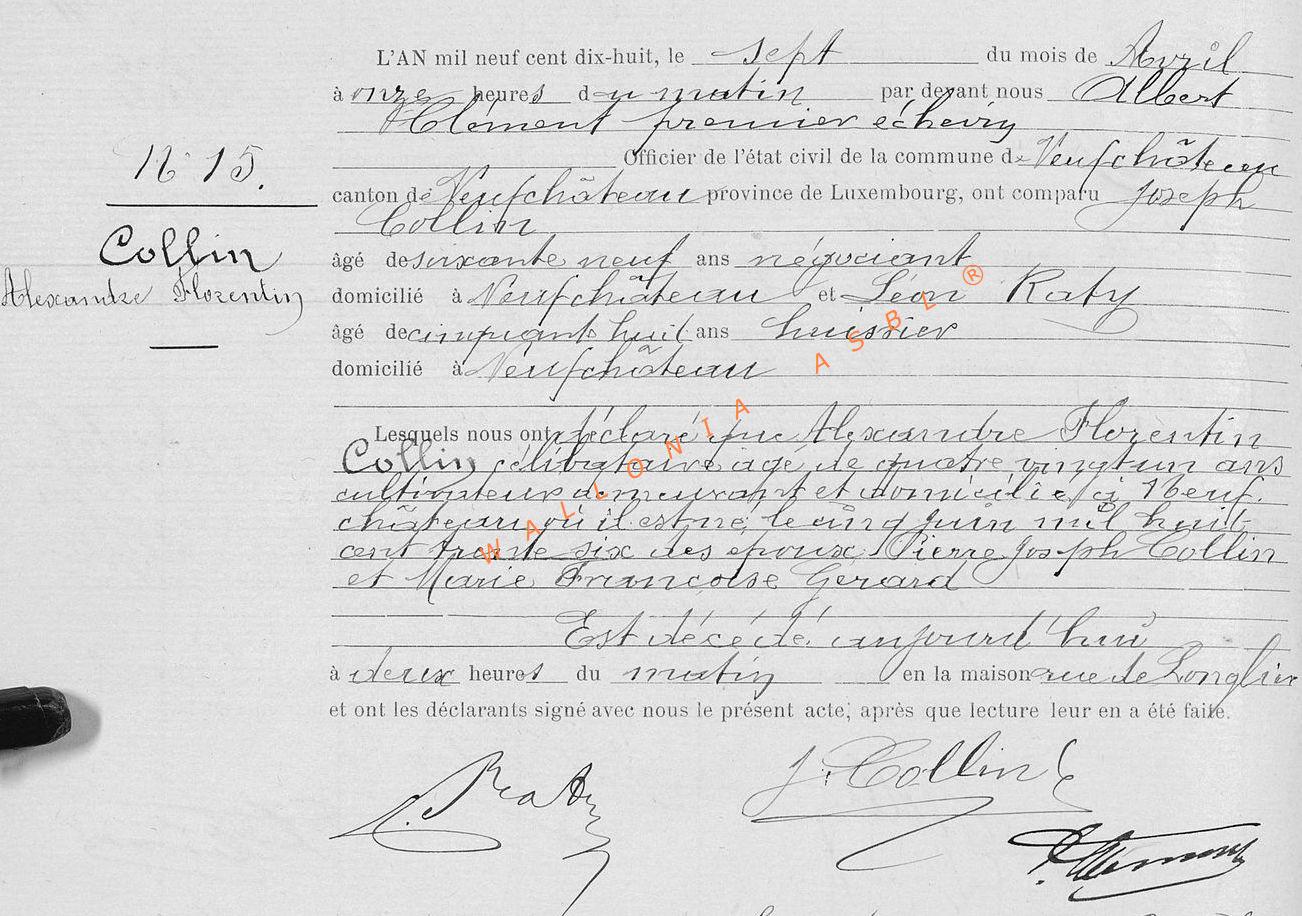 L'AN mil neuf cent dix-huit, le sept du mois de Avril
à onze heures du matin par devant nous Albert
Clément premier échevin
Officier de l'état civil de la commune de Neufchâteau
N° 15.
canton de Neufchâteau province de Luxembourg, ont comparu Joseph
Collin
Collin
Alexandre Florentin
âgé de soixante neuf ans négociant
domicilié à Neufchâteau et Léon Raty
âgé de cinquante huit ans huissier
domicilié à Neufchâteau
Lesquels nous ont déclaré que Alexandre Florentin
Collin célibataire agé de quatre vingt un ans
cultivateur demeurant et domicilié à Neuf-
château où il est né le cinq juin mil huit
cent trente six des époux Pierre Joseph Collin
et Marie Françoise Gérard
Est décédé aujourd'hui
à deux heures du matin en la maison rue de Longlier
et ont les déclarants signé avec nous le présent acte, après que lecture leur en a été faite.
L. Raty
J. Collin
WALLONIA ASBL ®